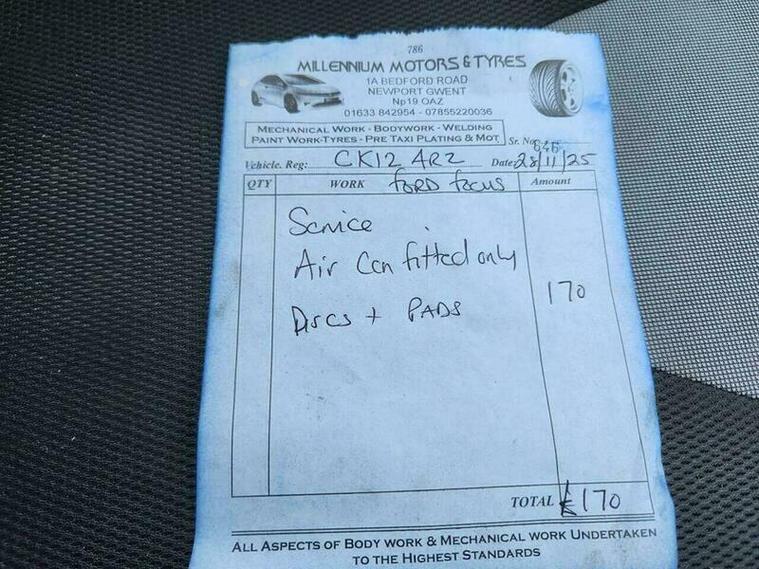 786
MILLENNIUM MOTORS & TYRES
1A BEDFORD ROAD
NEWPORT GWENT
Np19 OAZ
01633 842954 - 07855220036
MECHANICAL WORK - BODYWORK - WELDING
PAINT WORK-TYRES - PRE TAXI PLATING & MOT
Sr. No. 646
Vehicle. Reg: CK12 ARZ Date: 28/11/25
QTY WORK FORD FOCUS Amount
Service
Air Con fitted only
170
Discs + PADS
TOTAL £170
ALL ASPECTS OF BODY WORK & MECHANICAL WORK UNDERTAKEN
TO THE HIGHEST STANDARDS